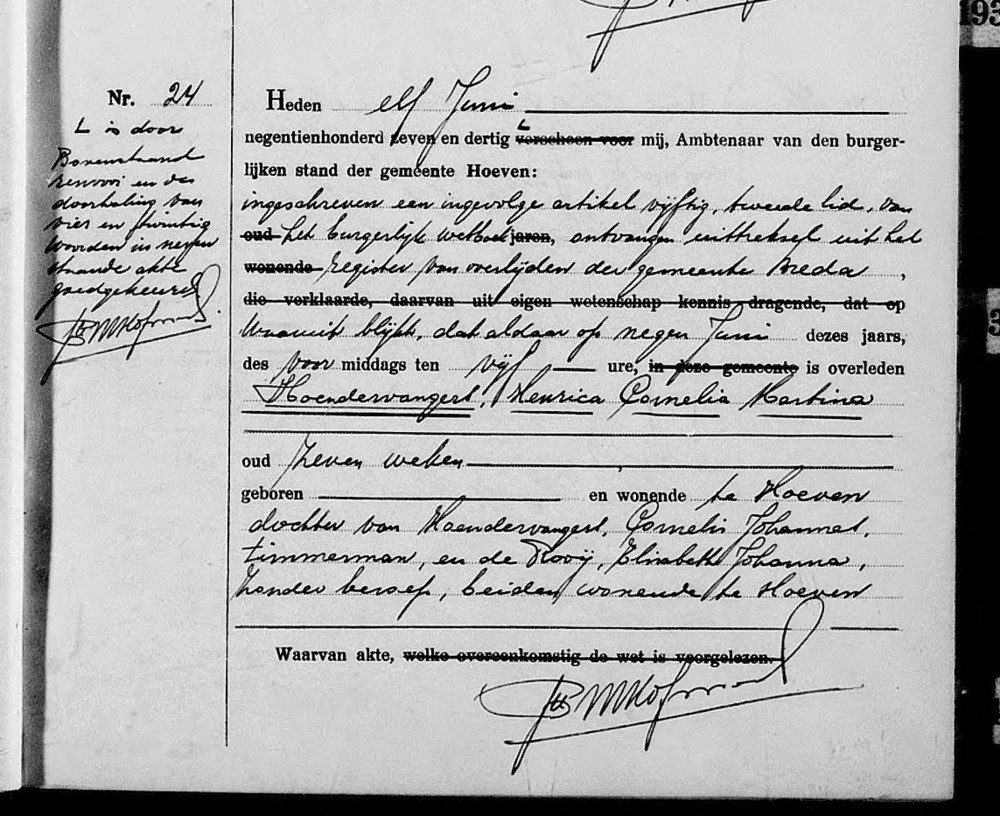 193
Nr. 24
L is door
Bovenstaand
renvooi en de
doorhaling van
vier en twintig
woorden in neven
staande akte
goedgekeurd
Heden elf Juni
negentienhonderd zeven en dertig L verscheen voor mij, Ambtenaar van den burger-
lijken stand der gemeente Hoeven:
ingeschreven een ingevolge artikel vijftig, tweede lid, van
oud het burgerlijk wetboek jaren, ontvangen uittreksel uit het
wonende register van overlijden der gemeente Breda,
die verklaarde, daarvan uit eigen wetenschap kennis dragende, dat op
waaruit blijkt, dat aldaar op negen Juni dezes jaars,
des voor middags ten vijf ure, in deze gemeente is overleden
Hoendervangers, Henrica Cornelia Martina
oud zeven weken
geboren en wonende te Hoeven
dochter van Hoendervangers, Cornelis Johannes,
timmerman, en de Rooij, Elisabeth Johanna,
zonder beroep, beiden wonende te Hoeven
Waarvan akte, welke overeenkomstig de wet is voorgelezen.